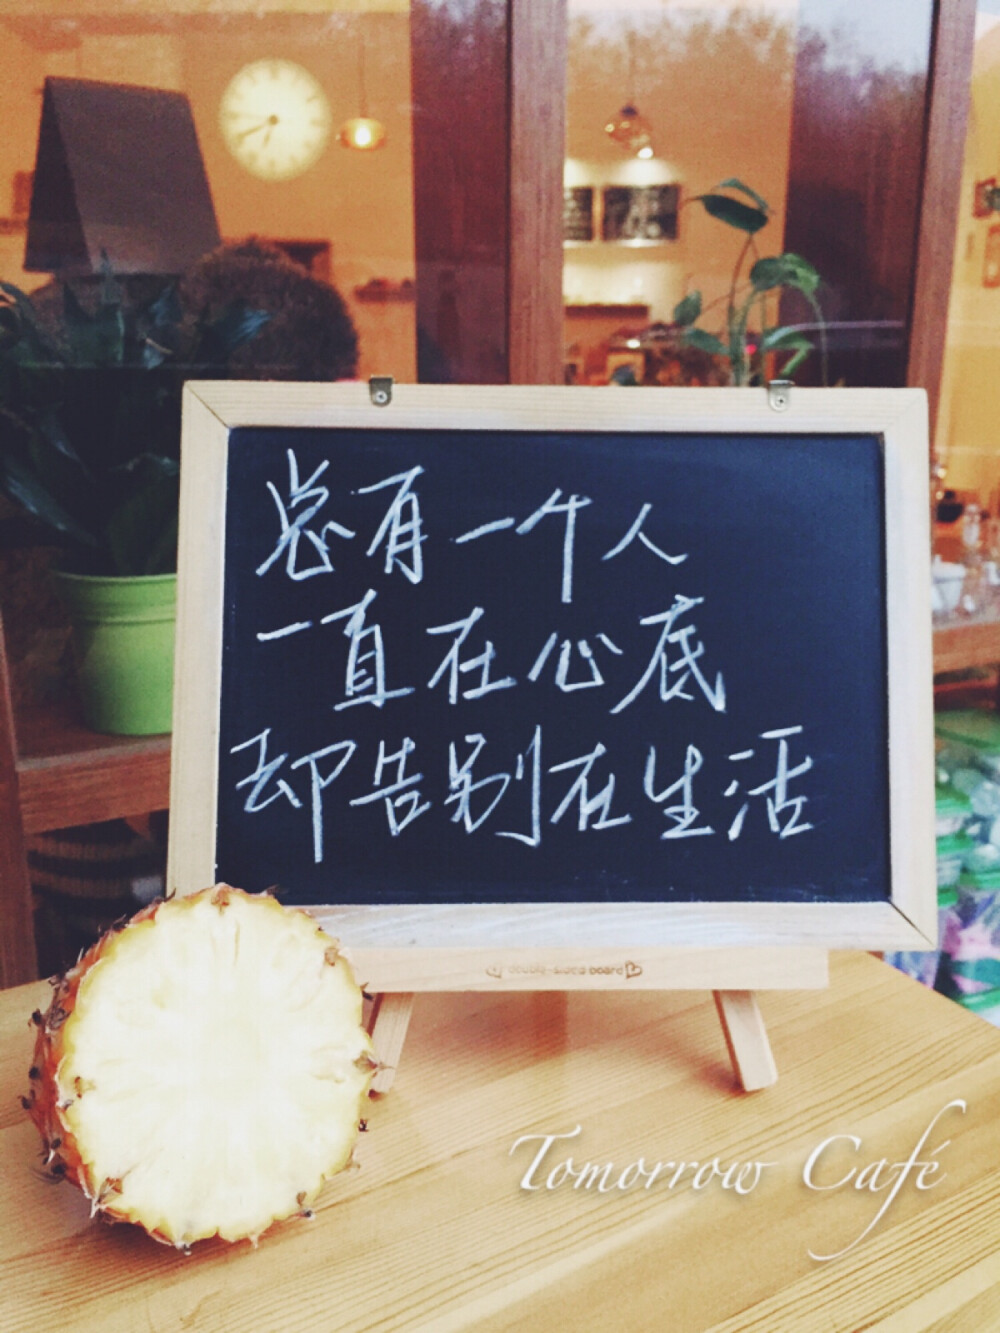 总有一个人
一直在心底
却告别在生活
double-sided board
Tomorrow Café